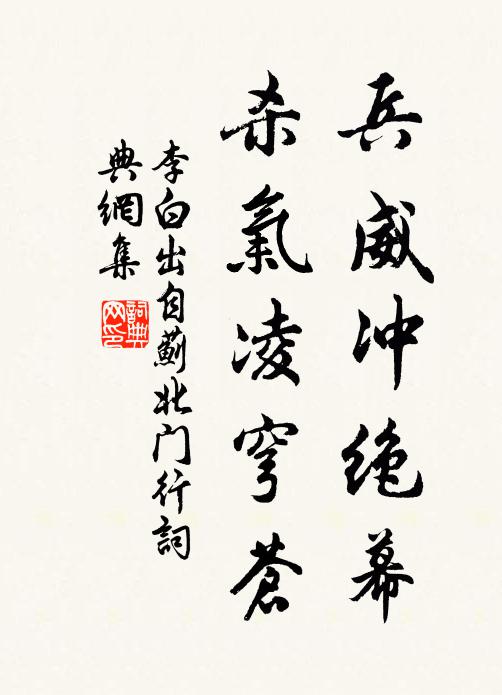 兵威冲绝幕
杀氣凌穹苍
李白出自薊北门行詞
典網集
詞典
网印